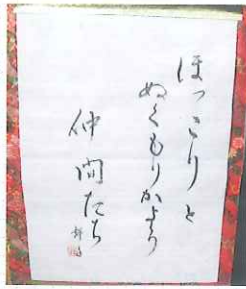 ほっこりと
ぬくもりかよう
仲間たち